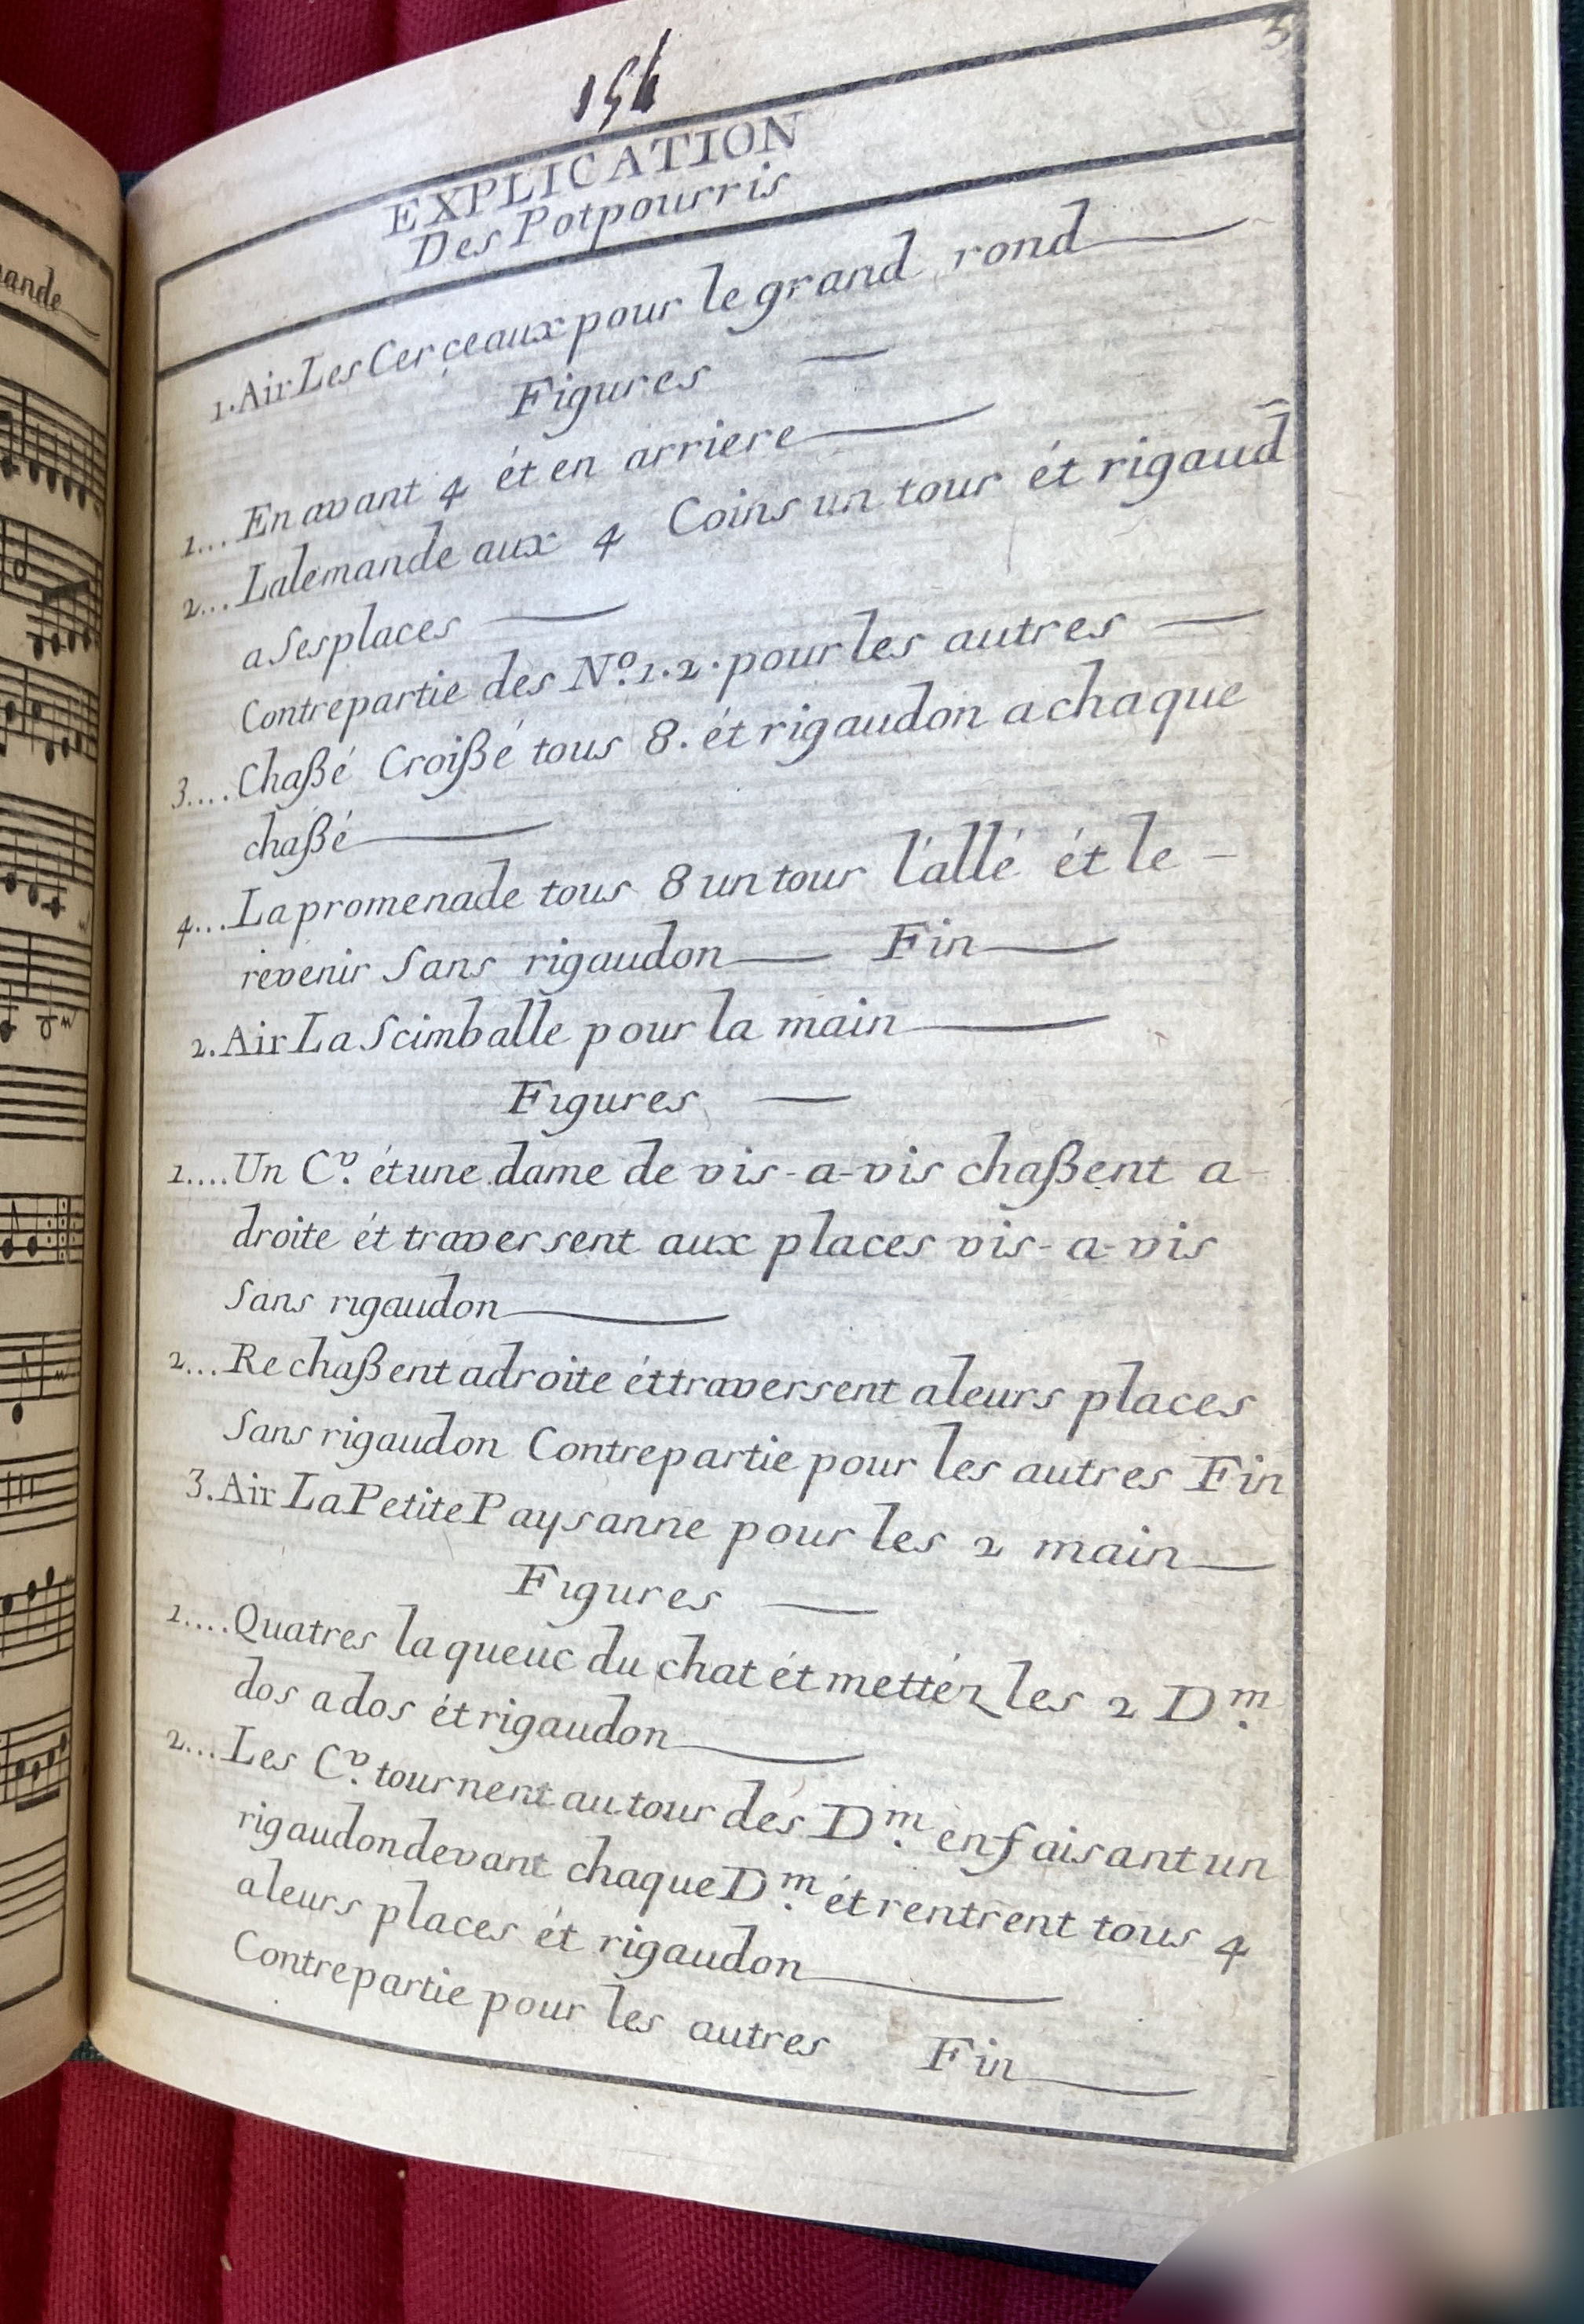 ande
3
154
EXPLICATION
Des Potpourris
1. Air Les Cerceaux pour le grand rond
Figures
1... En avant 4 ét en arriere
2... Lalemande aux 4 Coins un tour ét rigaud
a Ses places
Contrepartie des Nº. 1. 2. pour les autres
3.... Chaßé Croißé tous 8. ét rigaudon a chaque
chaßé
4... La promenade tous 8 un tour l'allé ét le
revenir Sans rigaudon Fin
2. Air La Scimballe pour la main
Figures
1.... Un Cv. ét une dame de vis-a-vis chaßent a
droite ét traversent aux places vis-a-vis
Sans rigaudon
2... Rechaßent a droite ét traversent a leurs places
Sans rigaudon Contrepartie pour les autres Fin
3. Air La Petite Paysanne pour les 2 main
Figures
1.... Quatres la queue du chat ét mettéz les 2 Dm.
dos a dos ét rigaudon
2... Les Cv. tournent autour dés Dm. en faisant un
rigaudon devant chaque Dm. ét rentrent tous 4
a leurs places ét rigaudon
Contrepartie pour les autres Fin